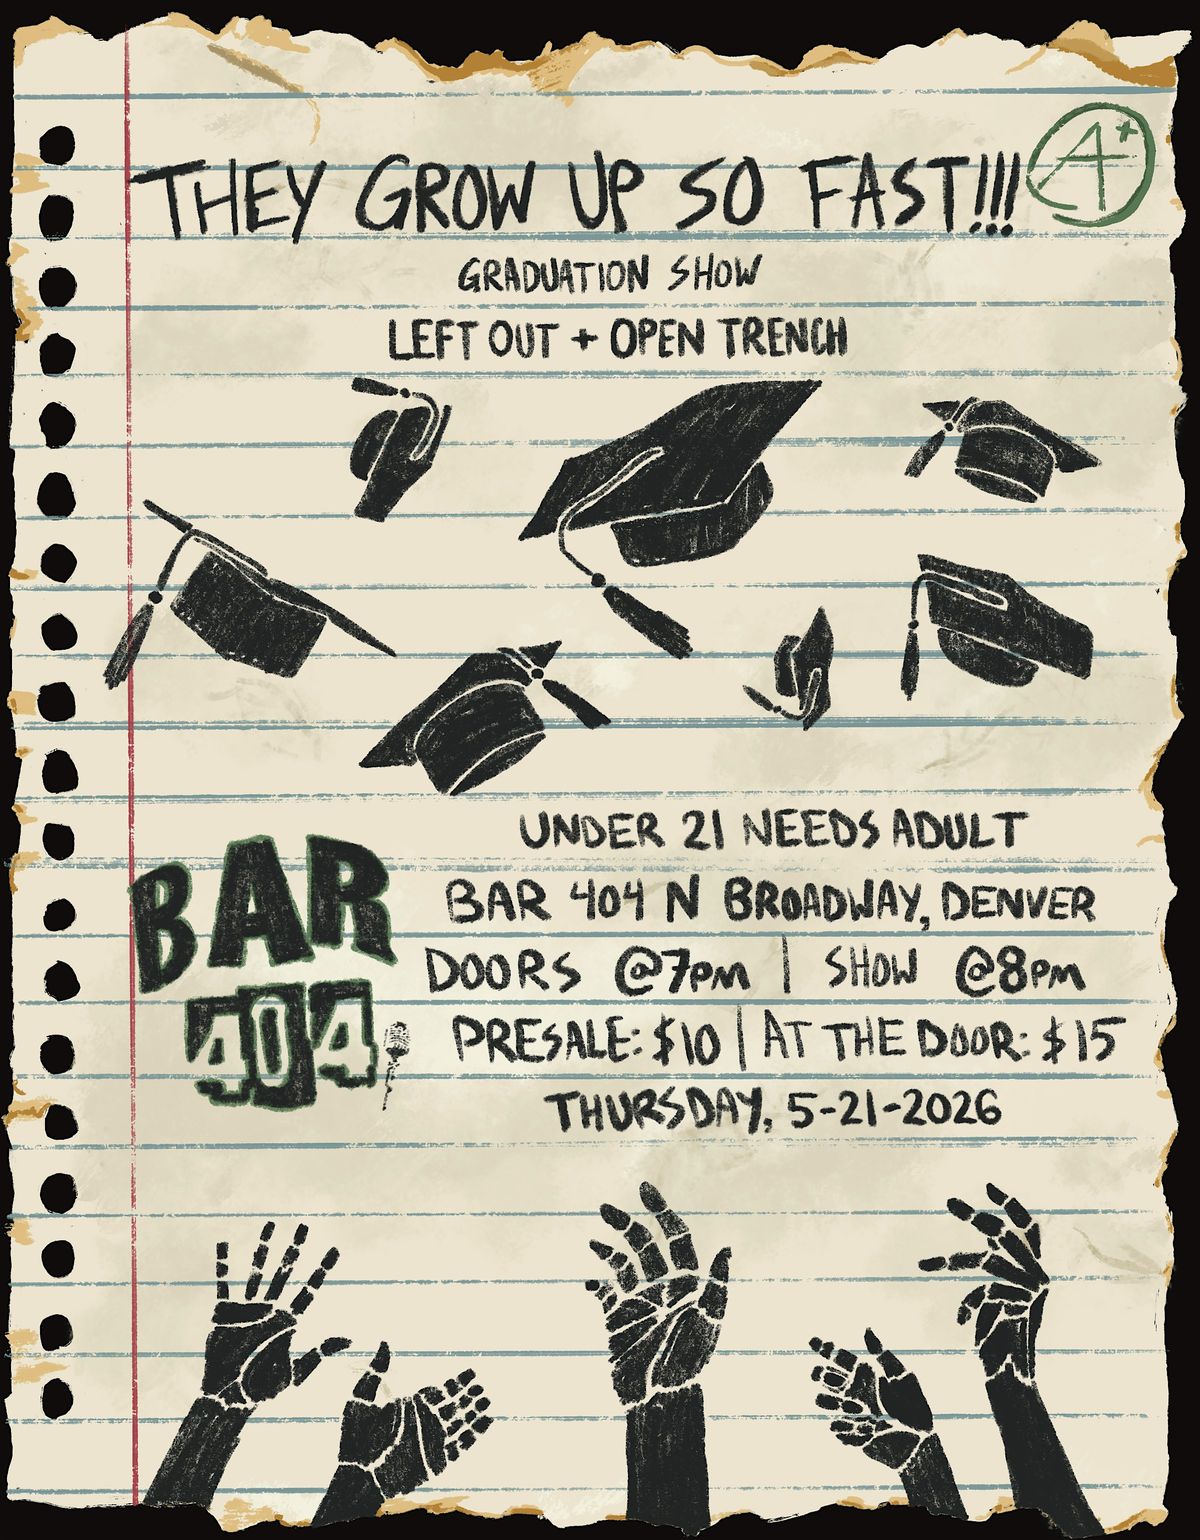 THEY GROW UP SO FAST!!!
A+
GRADUATION SHOW
LEFT OUT + OPEN TRENCH
UNDER 21 NEEDS ADULT
BAR 404 N BROADWAY, DENVER
DOORS @7pm | SHOW @8pm
PRESALE: $10 | AT THE DOOR: $15
THURSDAY, 5-21-2026
BAR
404